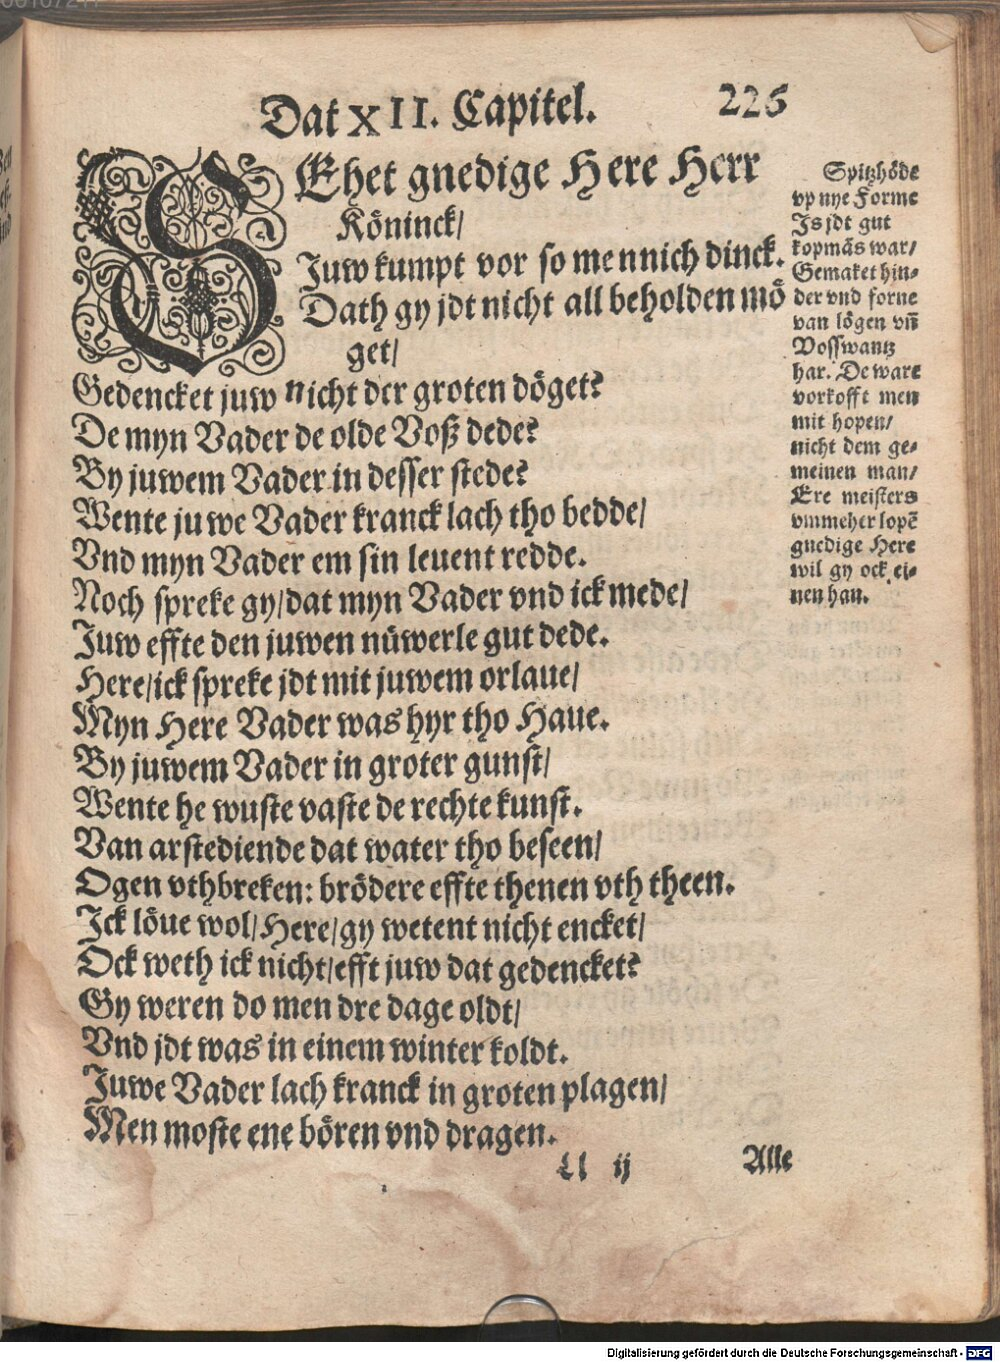 Dat XII. Capitel.
226
SEhet gnedige Here Herr
Köninck/
Juw kumpt vor so mennich dinck.
Dath gy jdt nicht all beholden mö
get/
Gedencket juw nicht der groten döget?
De myn Vader de olde Voß dede?
By juwem Vader in desser stede?
Wente juwe Vader kranck lach tho bedde/
Vnd myn Vader em sin leuent redde.
Noch spreke gy/dat myn Vader vnd ick mede/
Juw effte den juwen nüwerle gut dede.
Here/ick spreke jdt mit juwem orlaue/
Myn Here Vader was hyr tho Haue.
By juwem Vader in groter gunst/
Wente he wuste vaste de rechte kunst.
Van arstediende dat water tho beseen/
Ogen vthbreken: brödere effte thenen vth theen.
Ick löue wol/Here/gy wetent nicht encket/
Ock weth ick nicht/efft juw dat gedencket?
Gy weren do men dre dage oldt/
Vnd jdt was in einem winter koldt.
Juwe Vader lach kranck in groten plagen/
Men moste ene bören vnd dragen.
Ll ij
Alle
Spitzhöde
vp nye Forme
Is jdt gut
kopmās war/
Gemaket hin-
der vnd forne
van lögen vñ
Vosswantz
har. De ware
vorkofft men
mit hopen/
nicht dem ge-
meinen man/
Ere meisters
vmmeher lopē
gnedige Here
wil gy ock ei-
nen han.
Digitalisierung gefördert durch die Deutsche Forschungsgemeinschaft - DFG